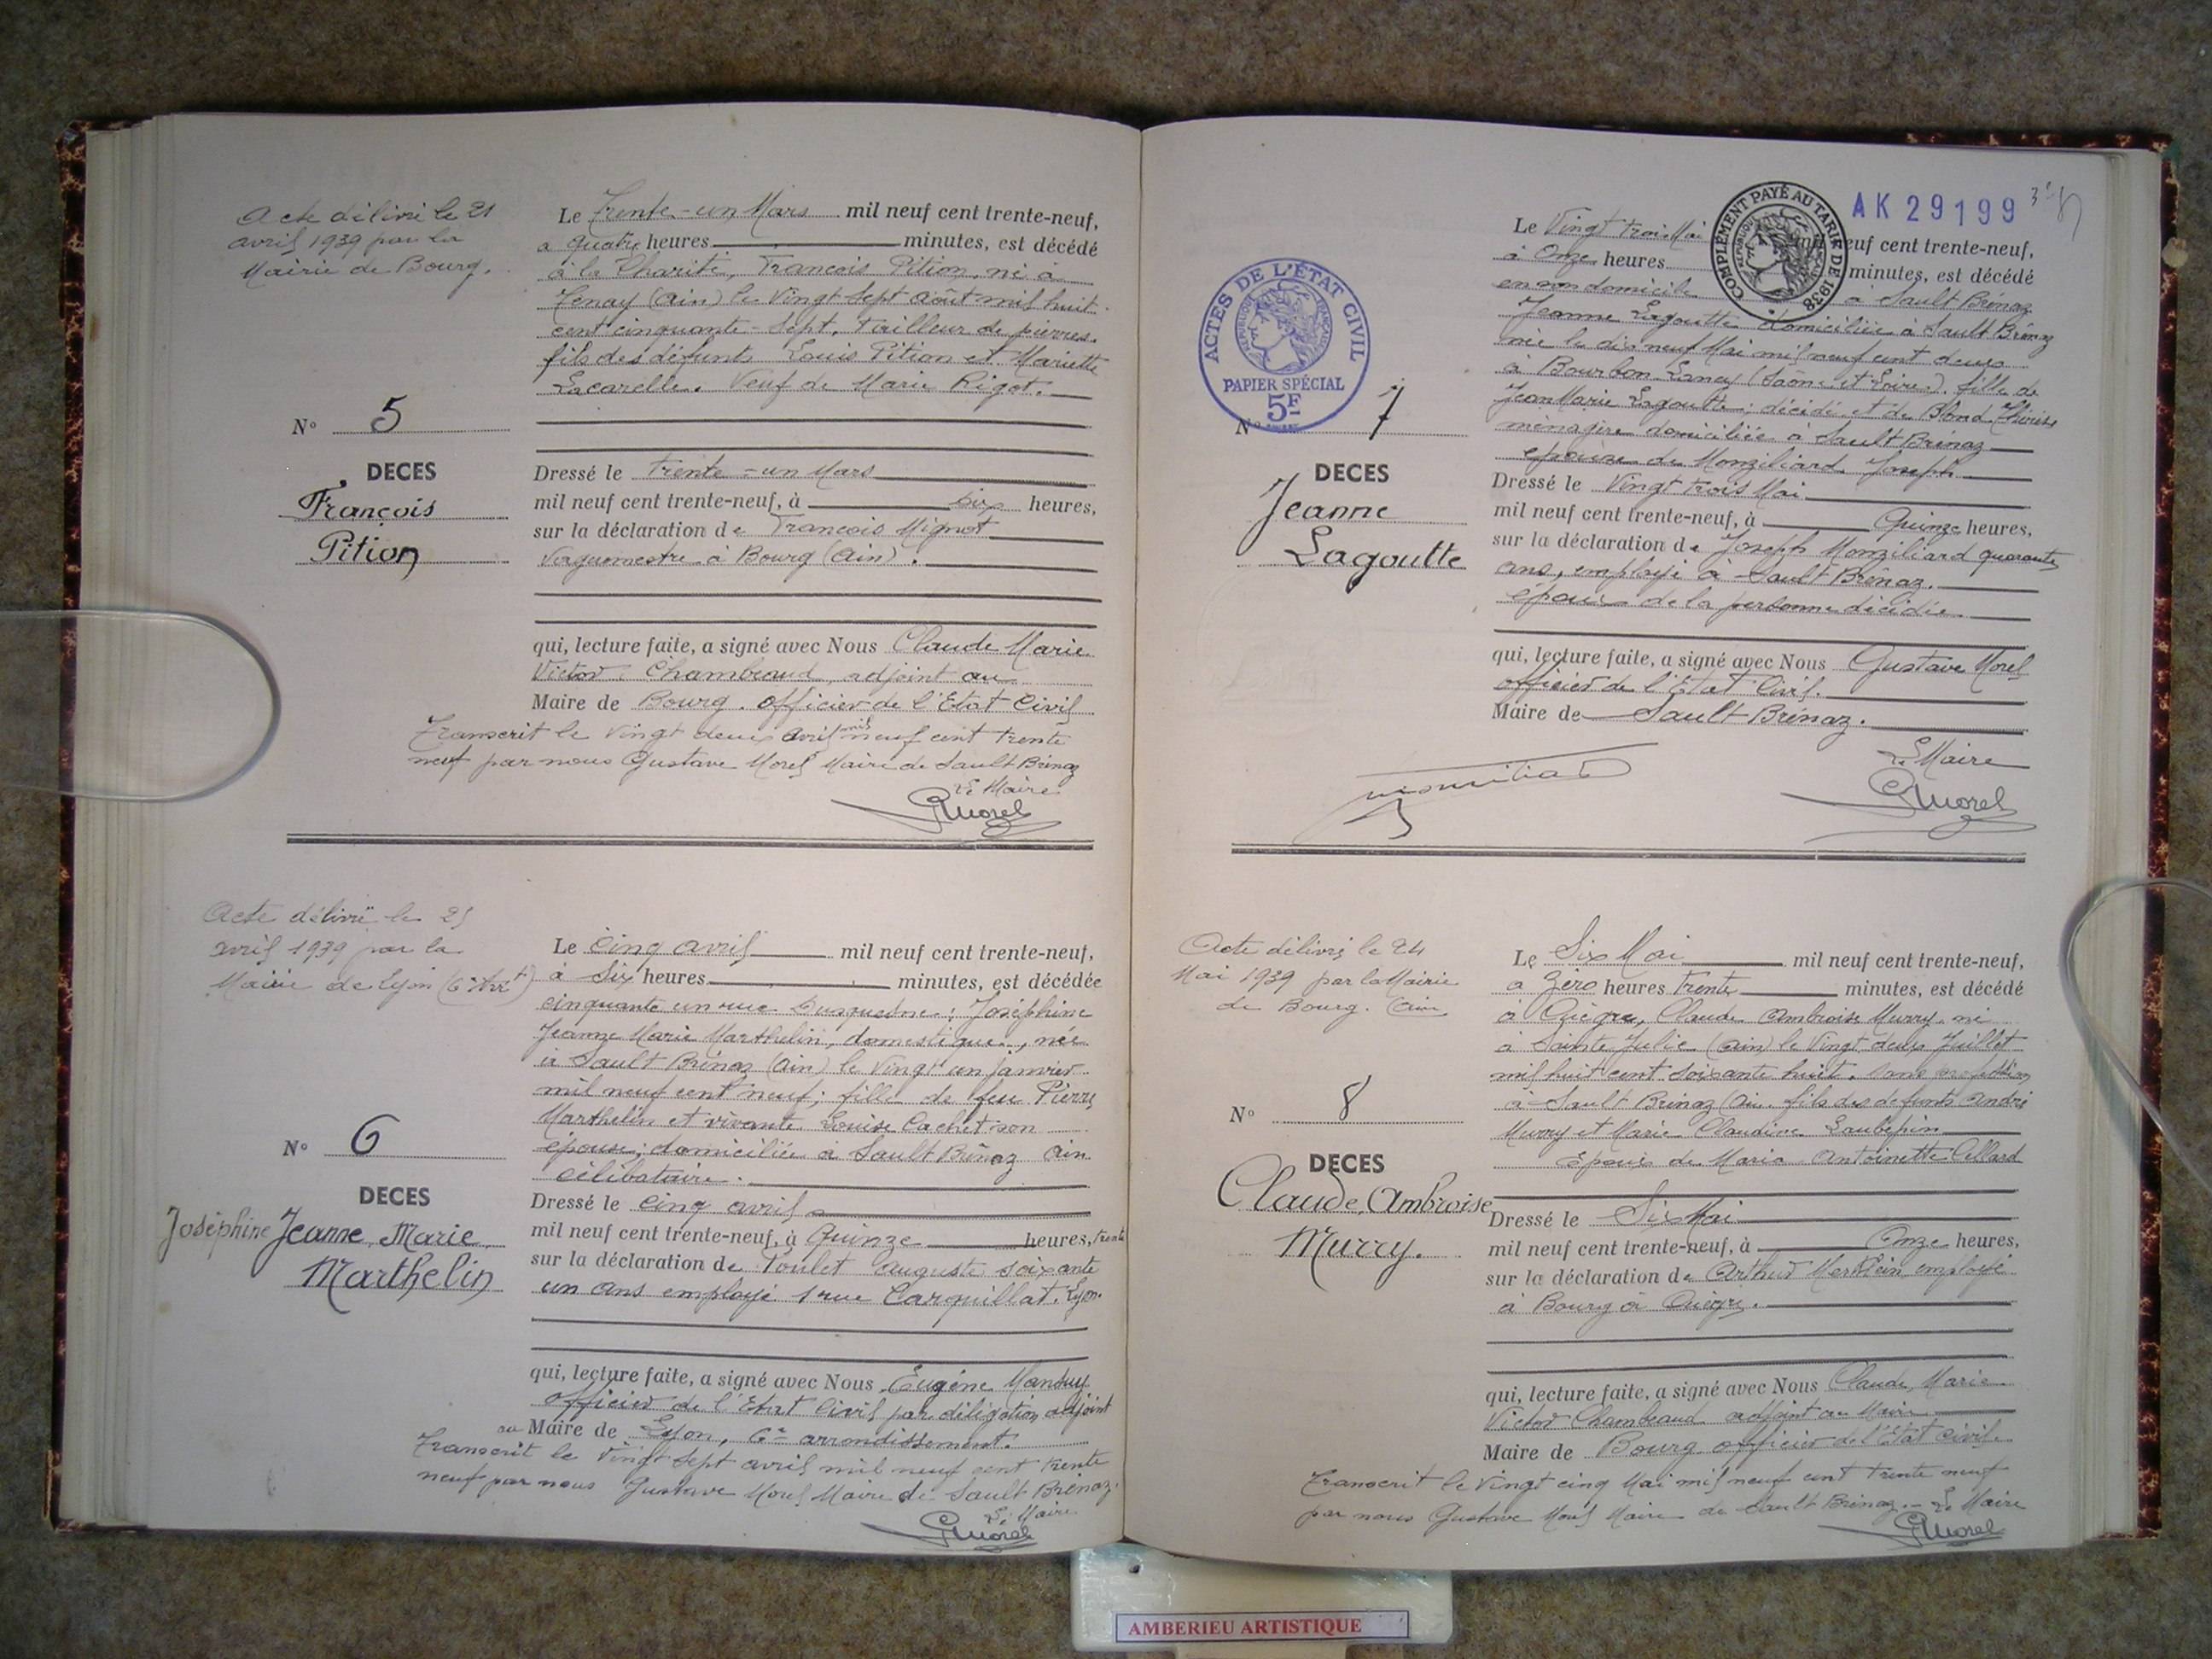 Acte délivré le 21
avril 1939 par la
Mairie de Bourg.
N° 5
DECES
François
Pition
Le Trente-un Mars mil neuf cent trente-neuf,
a quatre heures minutes, est décédé
à la Charité, François Pition, né à
Tenay (Ain) le Vingt sept août mil huit
cent cinquante-sept, tailleur de pierres.
fils des défunts Louis Pition et Mariette
Lacarelle. Veuf de Marie Rigot.
Dressé le trente-un Mars
mil neuf cent trente-neuf, à six heures,
sur la déclaration de François Mignot
Vaguemestre à Bourg (Ain).
qui, lecture faite, a signé avec Nous Claude Marie
Victor Chambeaud, adjoint au
Maire de Bourg. officier de l'Etat Civil
Transcrit le Vingt deux avril mil neuf cent trente
neuf par nous Gustave Morel Maire de Sault Brénaz
Le Maire
GMorel
Acte délivré le 25
avril 1939 par la
Mairie de Lyon (6e Arrt)
N° 6
DECES
Joséphine Jeanne Marie
Marthelin
Le cinq avril mil neuf cent trente-neuf,
à Six heures minutes, est décédée
cinquante un rue Duquesne; Joséphine
Jeanne Marie Marthelin, domestique, née
à Sault Brénaz (Ain) le Vingt un janvier
mil neuf cent neuf; fille de feu Pierre
Marthelin et vivante Louise Cachet son
épouse; domiciliée à Sault Brénaz Ain
célibataire.
Dressé le cinq avril
mil neuf cent trente-neuf, à Quinze heures, trente
sur la déclaration de Poulet Auguste soixante
un ans employé 1 rue Carquillat. Lyon.
qui, lecture faite, a signé avec Nous Eugène
officier de l'Etat Civil par délégation adjoint
au Maire de Lyon, 6e arrondissement.
Transcrit le Vingt sept avril mil neuf cent trente
neuf par nous Gustave Morel Maire de Sault Brénaz.
Le Maire
GMorel
AK 29199
COMPLÉMENT PAYÉ AU TARIF DE 1938
REPUBLIQUE FRANÇAISE
ACTES DE L'ÉTAT CIVIL
REPUBLIQUE FRANÇAISE
PAPIER SPÉCIAL
5F
N° 7
DECES
Jeanne
Lagoutte
Le Vingt trois Mai mil neuf cent trente-neuf,
à Onze heures minutes, est décédé
en son domicile à Sault Brénaz
Jeanne Lagoutte domiciliée à Sault Brénaz
née le dix neuf Mai mil neuf cent deux
à Bourbon Lancy (Saône et Loire). fille de
Jean Marie Lagoutte, décédé et de Blond Thérèse
ménagère domiciliée à Sault Brénaz
épouse de Monziliard Joseph
Dressé le Vingt trois Mai
mil neuf cent trente-neuf, à Quinze heures,
sur la déclaration de Joseph Monziliard quarante
ans, employé à Sault Brénaz.
époux de la personne décédée
qui, lecture faite, a signé avec Nous Gustave Morel
officier de l'Etat Civil.
Maire de Sault Brénaz.
Le Maire
GMorel
Acte délivré le 24
Mai 1939 par la Mairie
de Bourg. Ain
N° 8
DECES
Claude, Ambroise
Murry.
Le Six Mai mil neuf cent trente-neuf,
a Zéro heures Trente minutes, est décédé
à Cuègre, Claude Ambroise Murry, né
à Sainte Julie (Ain) le Vingt deux Juillet
mil huit cent soixante huit. sans profession
à Sault Brénaz Ain. fils des defunts André
Murry et Marie Claudine Laubépin
Epoux de Maria Antoinette Cellard
Dressé le Six Mai
mil neuf cent trente-neuf, à Onze heures,
sur la déclaration de Arthur employé
à Bourg à Cuègre.
qui, lecture faite, a signé avec Nous Claude, Marie
Victor Chambeaud adjoint au Maire
Maire de Bourg officier de l'Etat civil
Transcrit le Vingt cinq Mai mil neuf cent trente neuf
par nous Gustave Morel Maire de Sault Brénaz. - Le Maire
GMorel
AMBERIEU ARTISTIQUE